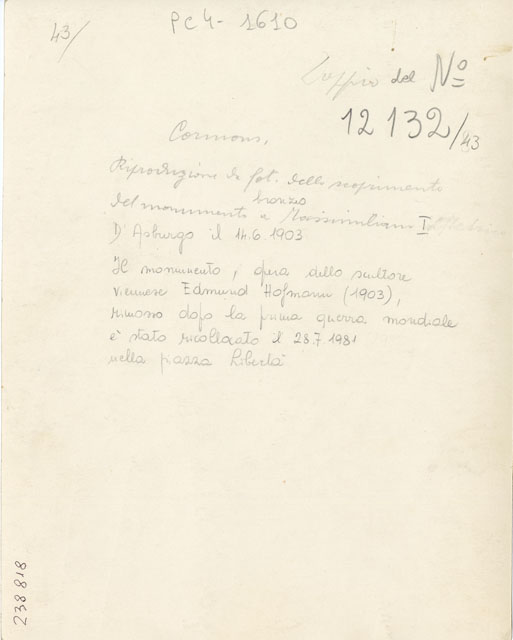 PC4- 1610
43/
Coppia del Nº
12132/43
Cormons,
Riproduzione da fot. dello scoprimento
bronzo
del monumento a Massimiliano I
D'Asburgo il 14.6.1903
Il monumento, opera dello scultore
viennese Edmund Hofmann (1903),
rimosso dopo la prima guerra mondiale
è stato ricollocato il 28.7.1981
nella piazza Libertà
238818